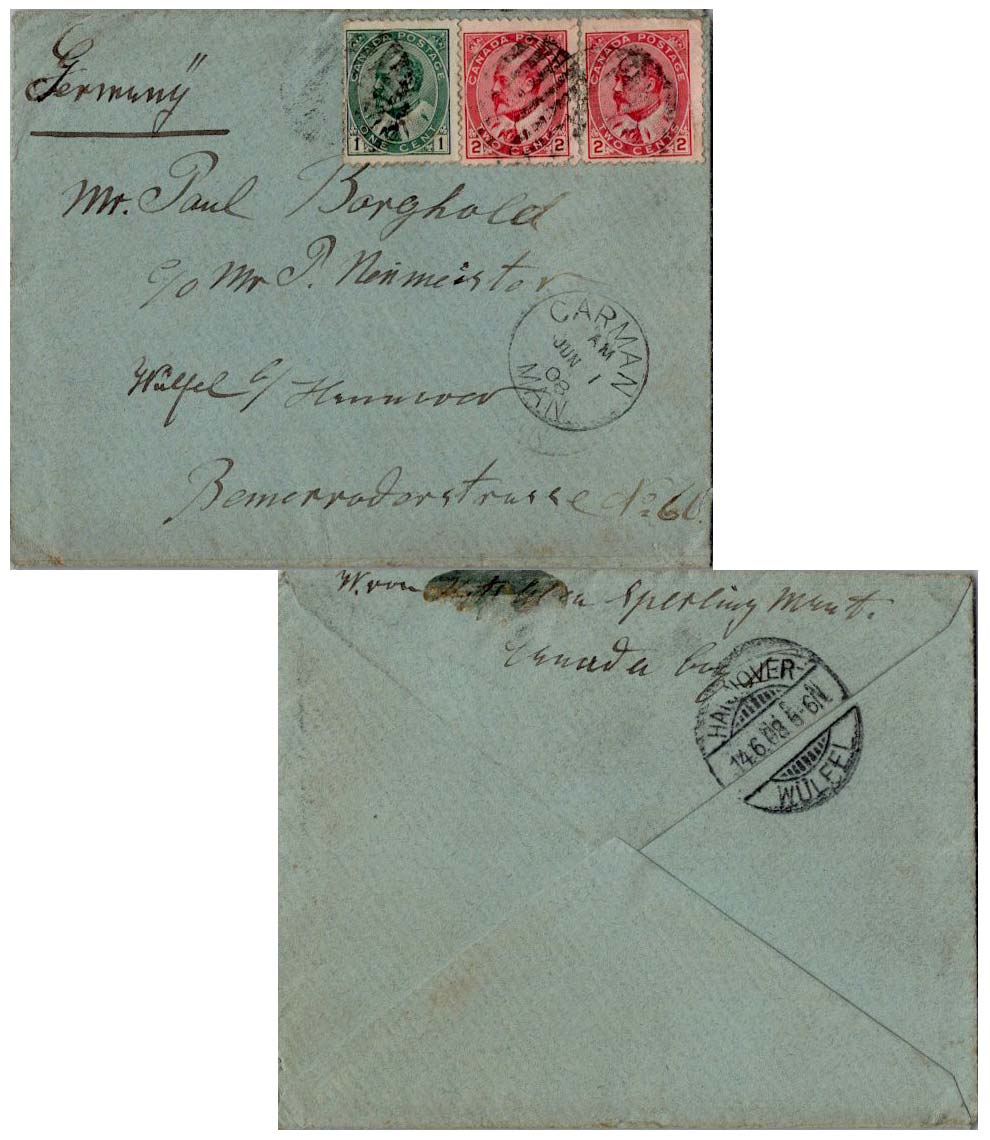 Germany"
CANADA POSTAGE
1 ONE CENT 1
CANADA POSTAGE
2 TWO CENTS 2
CANADA POSTAGE
2 TWO CENTS 2
Mr. Paul Borghold
c/o Mr P. Neumeister
CARMAN
AM
JUN 1
08
MAN
Wülfel b/ Hannover
Bemerroderstrasse No 60.
W. von Sperling Mant.
Canada
HANNOVER-
14.6.08 5-6N
WÜLFEL